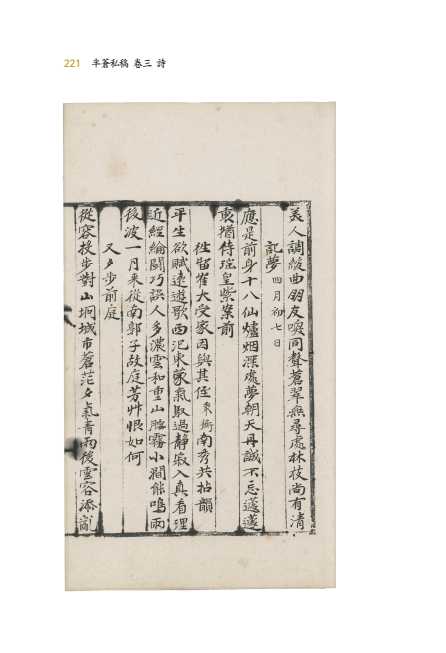 221 半蒼私稿 卷三 詩
美人調綴曲朋友喚同聲蒼翠無尋處林枝尚有清
記夢 四月初七日
應是前身十八仙爐烟深處夢朝天丹誠不忘蘧蘧
裏猶侍琁皇紫案前
往留崔大受家因與其侄 南秀共拈韻
平生欲賦遠遊歌西汜東蒙氣取過靜裏入真看理
近經綸鬪巧誤人多濃雲和重山臨霧小澗能鳴雨
後波一月來從南郭子故庭芳艸恨如何
又夕步前庭
從容投步對山坰城市蒼茫夕氣青雨後雲容添亂